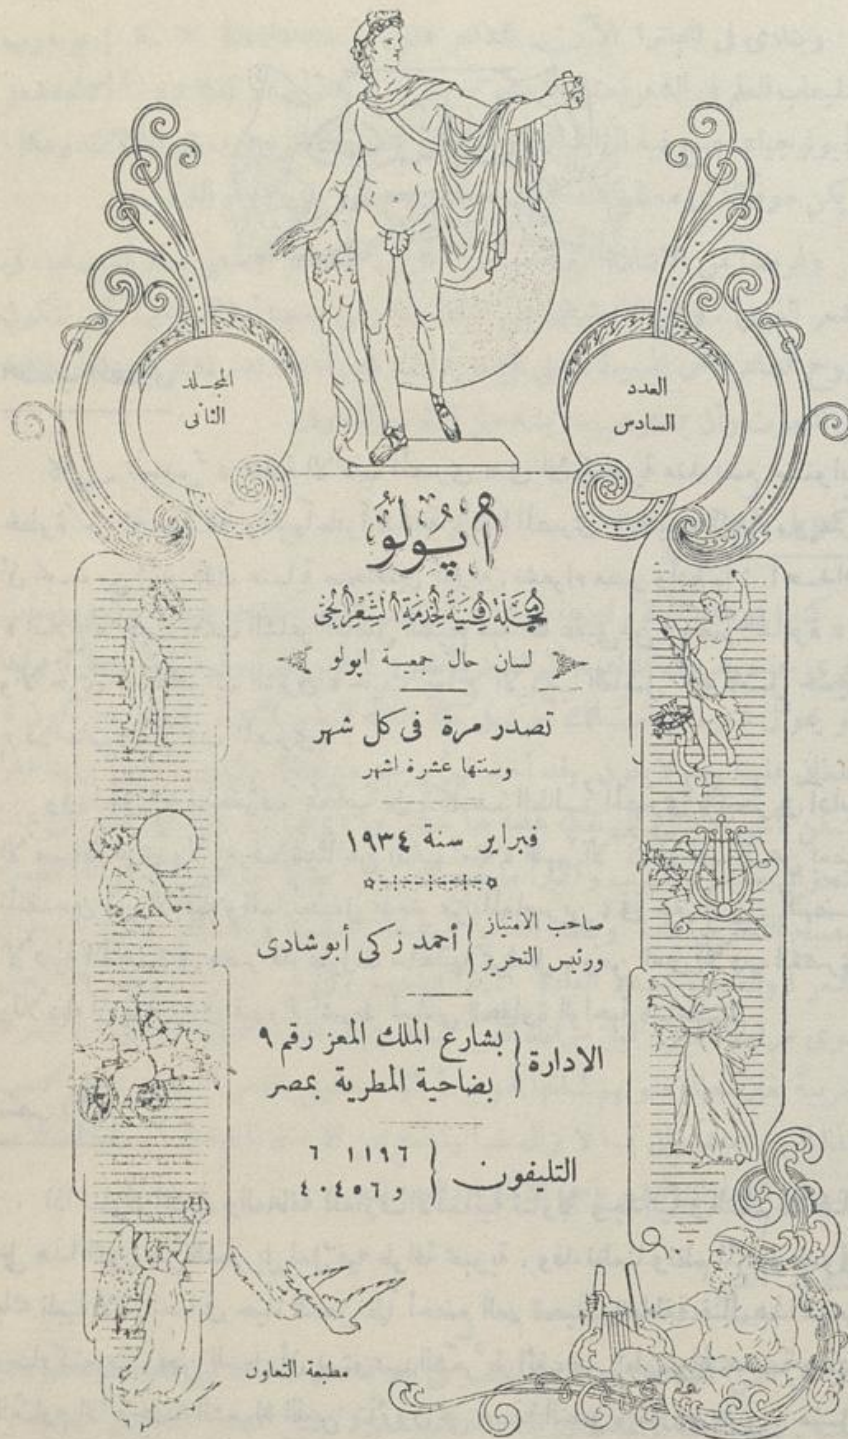 العدد
السادس
المجلد
الثانى
أپولو
مجلة فنية لخدمة الشعر الحى
لسان حال جمعية ابولو
تصدر مرة فى كل شهر
وسنتها عشرة اشهر
فبراير سنة ١٩٣٤
صاحب الامتياز
ورئيس التحرير
أحمد زكى أبوشادى
الادارة
بشارع الملك المعز رقم ٩
بضاحية المطرية بمصر
التليفون
٦ ١١٩٦
و ٤٠٤٥٦
مطبعة التعاون